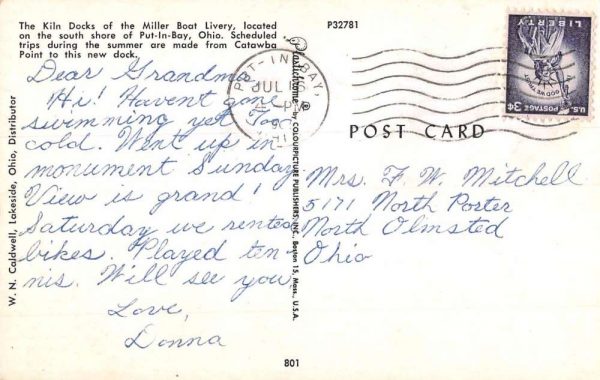 The Kiln Docks of the Miller Boat Livery, located
on the south shore of Put-In-Bay, Ohio. Scheduled
trips during the summer are made from Catawba
Point to this new dock.
P32781
Dear Grandma,
Hi! Havent gone
swimming yet. Too
cold. Went up in
monument Sunday
View is grand!
Saturday we rented
bikes. Played ten-
nis. Will see you,
Love,
Donna
W. N. Caldwell, Lakeside, Ohio, Distributor
Plastichrome ® by COLOURPICTURE PUBLISHERS, INC., Boston 15, Mass., U.S.A.
PUT-IN-BAY,
JUL
P
POST CARD
LIBERTY
IN GOD WE TRUST
U.S. POSTAGE 3¢
Mrs. F. W. Mitchell
5171 North Porter
North Olmsted
Ohio
801